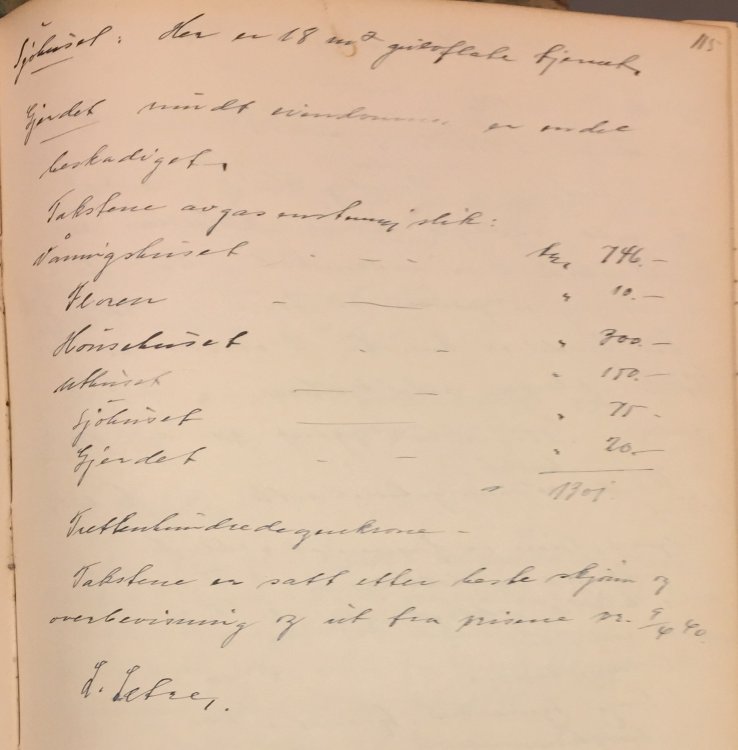 115
Sjöhuset: Her er 18 m2 gulvflate fjernet.
Gjerdet rundt eiendommen er endel
beskadiget.
Takstene avgas enstemmig slik:
Våningshuset - - - kr. 746.-
Floren - — " 10.-
Hönsehuset - - " 300.-
Uthuset — - " 150.-
Sjöhuset — " 75 -
Gjerdet - - " 20.-
" 1301.
Trettenhundredeogenkrone -
Takstene er satt etter beste skjönn og
overbevisning og ut fra prisene pr. 9/4 40.
L. Sætre,.